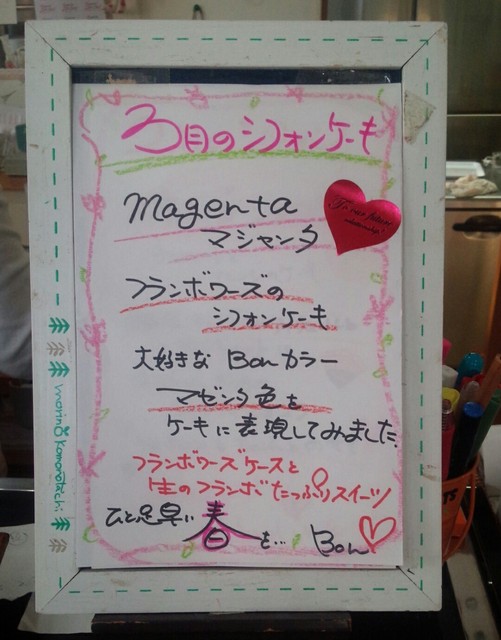 3月のシフォンケーキ
Magenta
マジャンタ
フランボワーズの
シフォンケーキ
大好きな Bonカラー
マゼンタ色を
ケーキに表現してみました。
フランボワーズケースと
生のフランボたっぷりスイーツ
ひと足早い春を…
Bon
morino Komorebichi